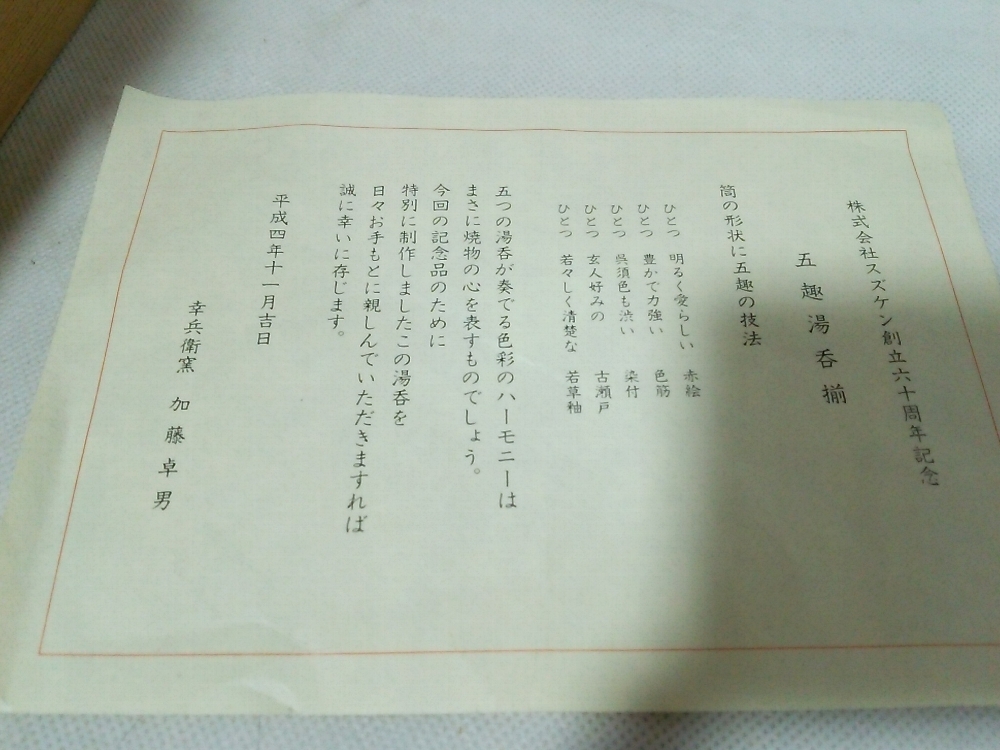 株式会社スズケン創立六十周年記念
五趣湯呑揃
筒の形状に五趣の技法
ひとつ 明るく愛らしい 赤絵
ひとつ 豊かで力強い 色筋
ひとつ 呉須色も渋い 染付
ひとつ 玄人好みの 古瀬戸
ひとつ 若々しく清楚な 若草釉
五つの湯呑が奏でる色彩のハーモニーは
まさに焼物の心を表すものでしょう。
今回の記念品のために
特別に制作しましたこの湯呑を
日々お手もとに親しんでいただきますれば
誠に幸いに存じます。
平成四年十一月吉日
幸兵衛窯 加藤卓男